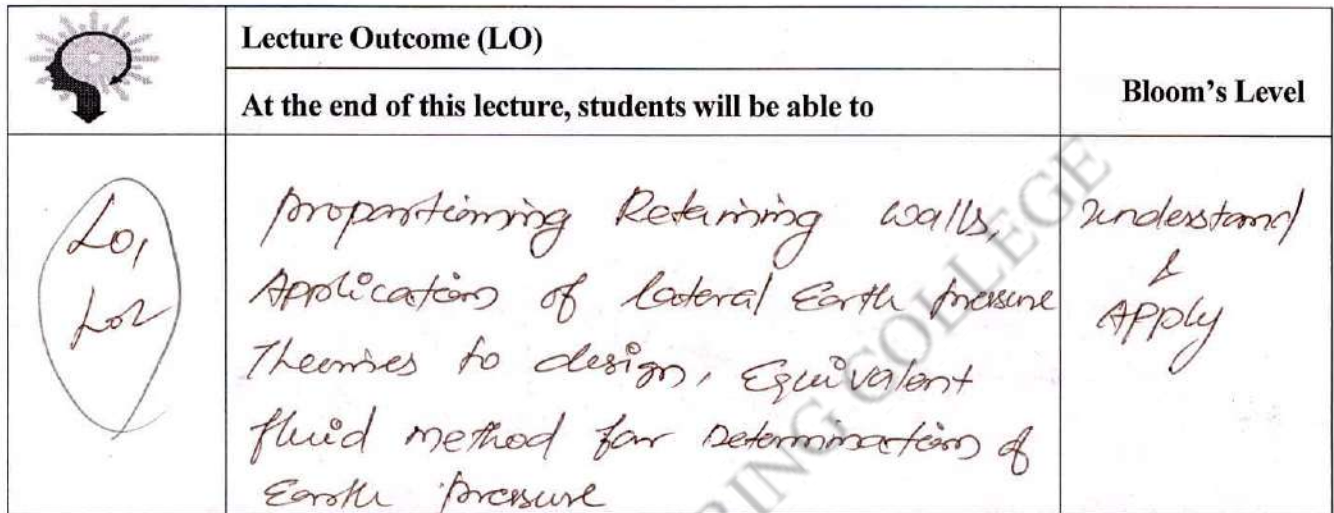 Lecture Outcome (LO)
At the end of this lecture, students will be able to
Bloom's Level
LO1
LO2
proportioning Retaining walls,
Application of lateral Earth pressure
Theories to design, Equivalent
fluid method for Determination of
Earth pressure
understand
&
Apply
RING COLLEGE